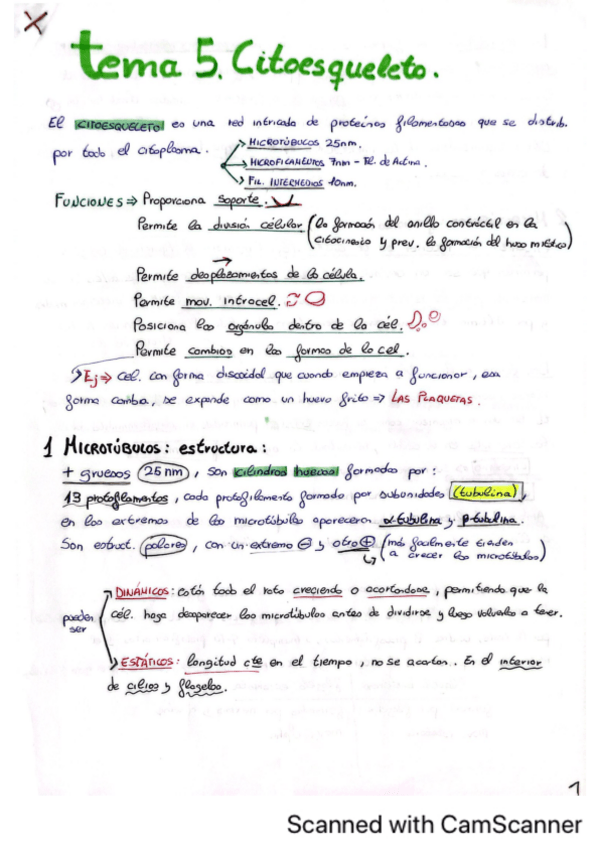 tema 5. Citoesqueleto.
El CITOESQUELETO es una red intricada de proteínas filamentosas que se distrib.
por todo el citoplasma.
MICROTÚBULOS 25nm.
MICROFILAMENTOS 7nm - Fil. de Actina.
FIL. INTERMEDIOS 10nm.
FUNCIONES ⇒ Proporciona soporte.
Permite la división célular (la formación del anillo contráctil en la
citocinesis y prev. la formación del huso mitótico)
Permite desplazamientos de la célula.
Permite mov. intracel.
Posiciona los orgánulos dentro de la cél.
Permite cambios en las formas de la cel.
Ej ⇒ Cel. con forma discoidal que cuando empieza a funcionar, esa
forma cambia, se expande como un huevo frito ⇒ LAS PLAQUETAS.
1 MICROTÚBULOS: estructura:
+ gruesos (25 nm), son cilindros huecos formados por:
13 protofilamentos, cada protofilamento formado por subunidades (tubulina),
en los extremos de los microtúbulos aparecen α-tubulina y β-tubulina.
Son estruct. polares, con un extremo ⊖ y otro ⊕ (más facilmente tienden
a crecer los microtúbulos)
pueden ser
DINÁMICOS: está todo el rato creciendo o acortandose, permitiendo que la
cél. haga desaparecer los microtúbulos antes de dividirse y luego volverlos a tener.
ESTÁTICOS: longitud cte en el tiempo, no se acortan. En el interior
de cilios y flagelos.
1
Scanned with CamScanner